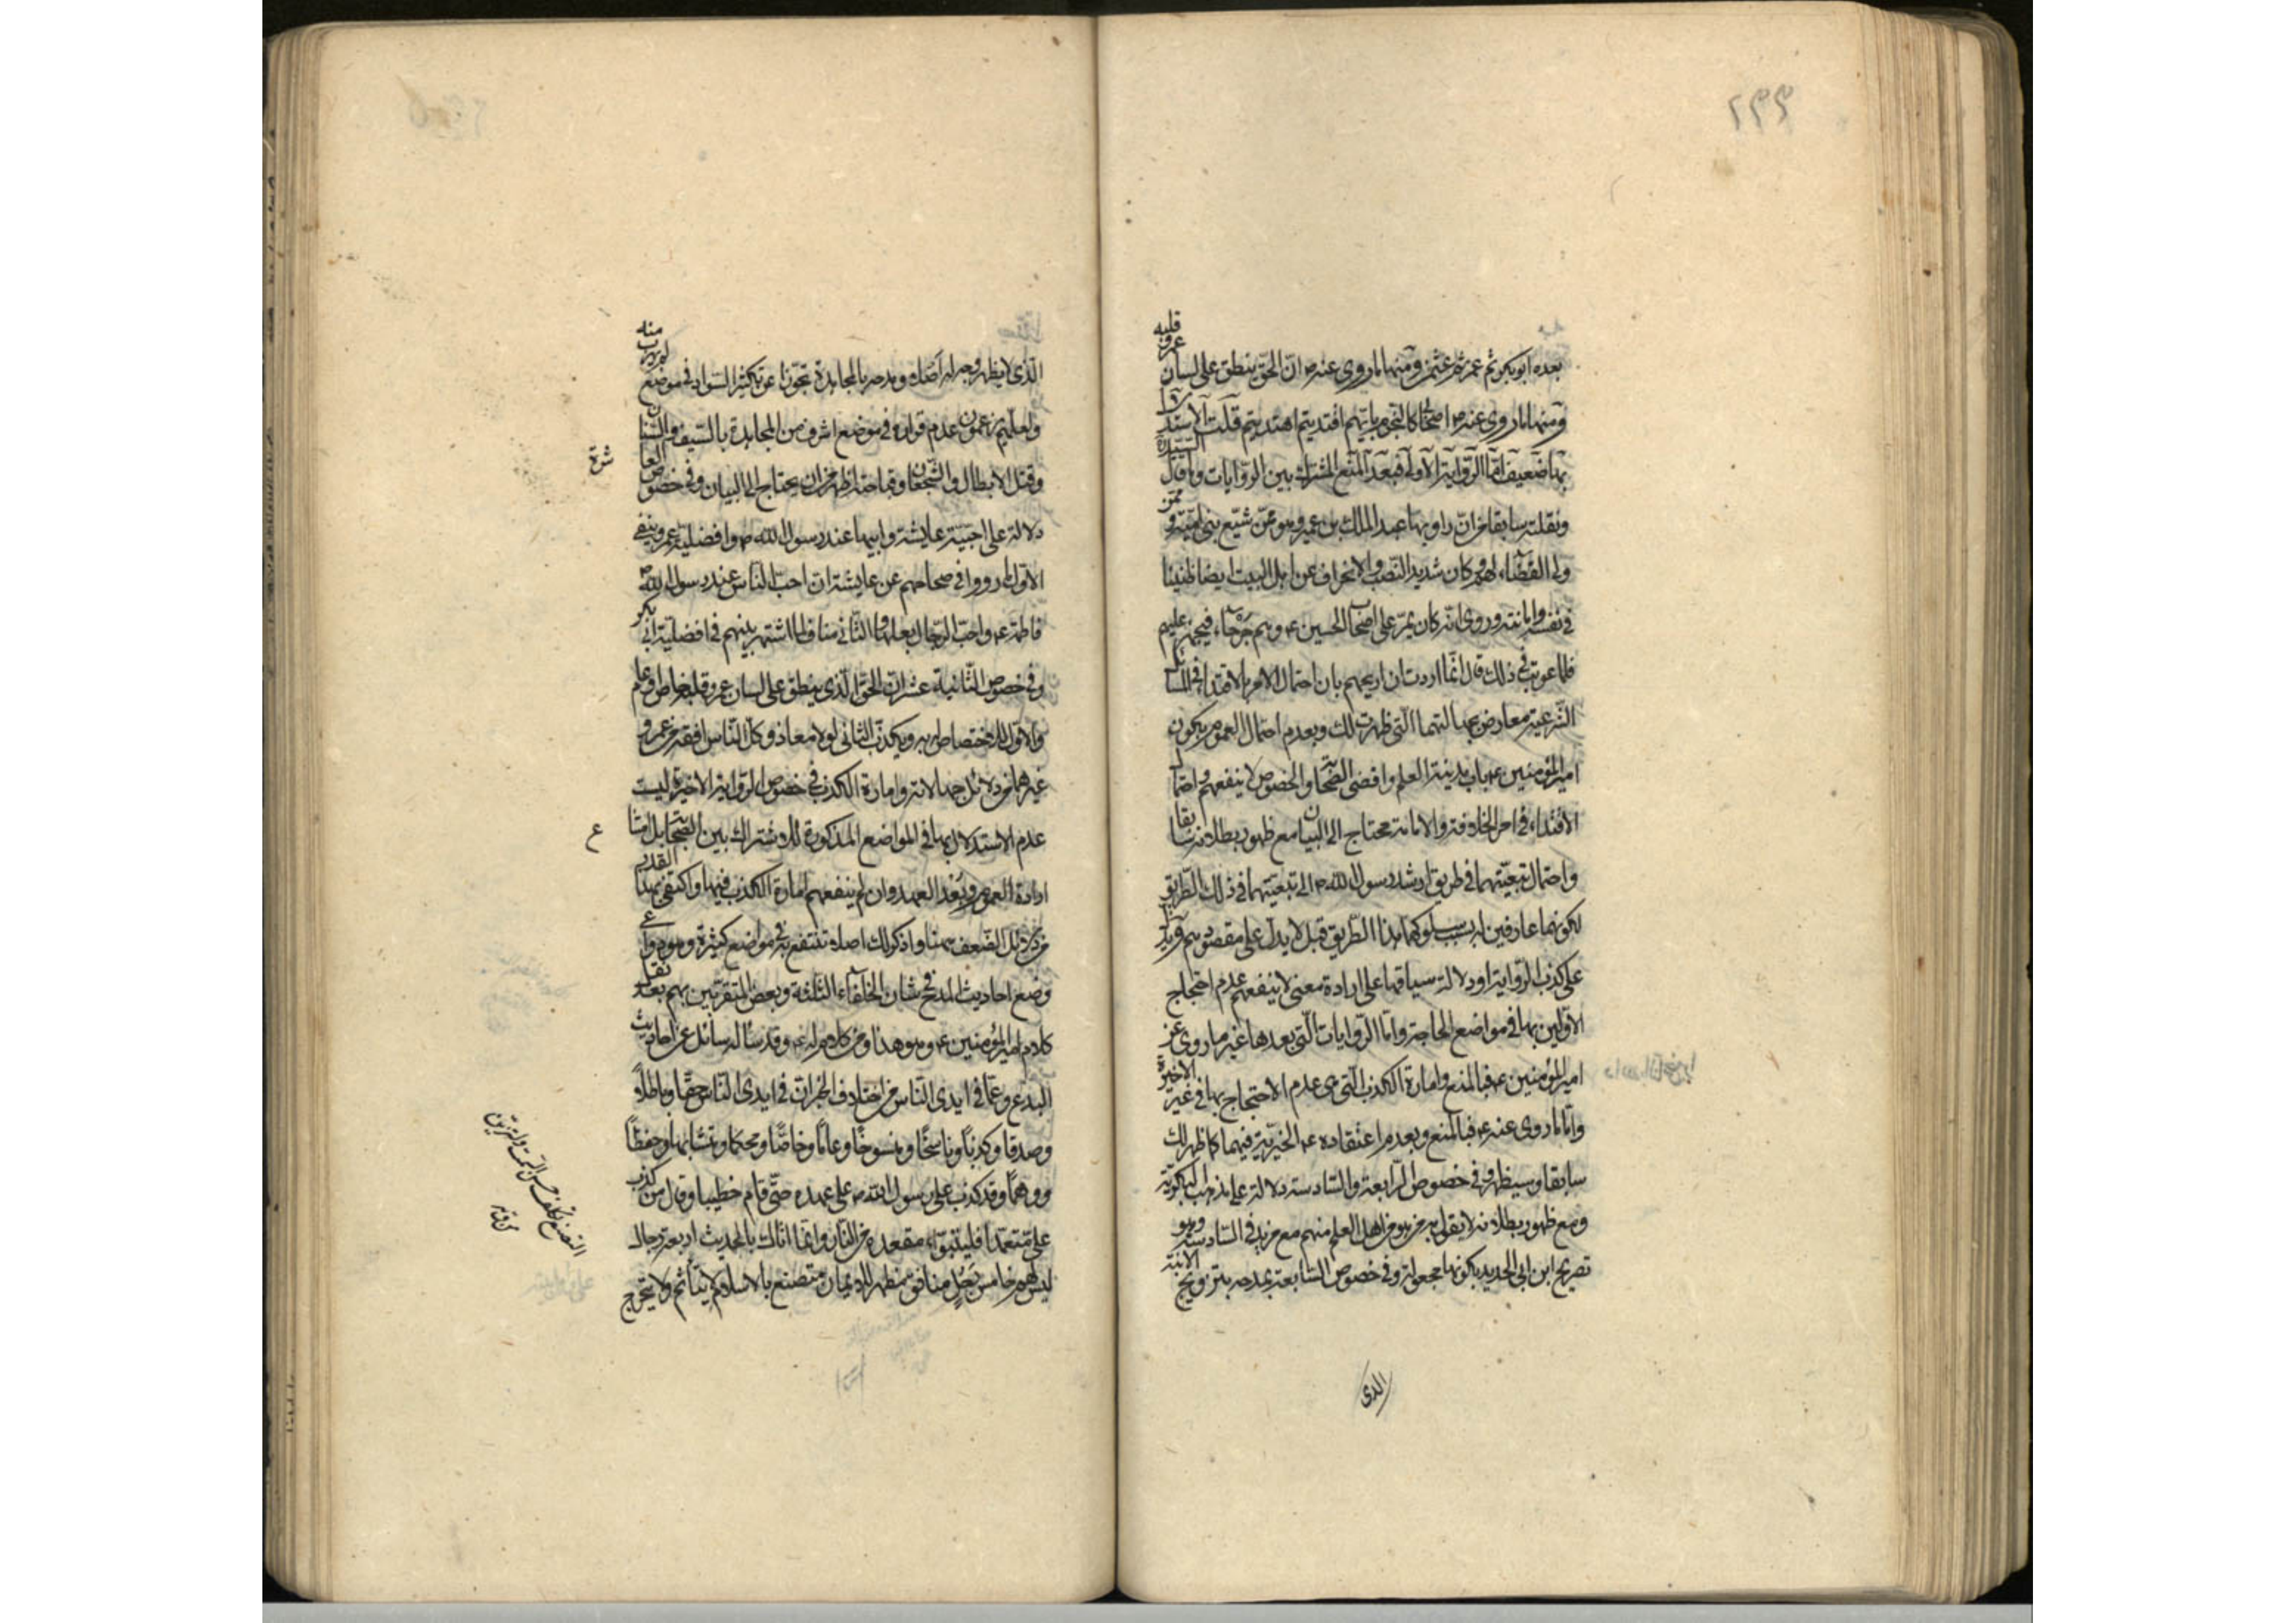 بعده ابوبكر ثم عمر ثم عثمن ومنها ما روى عنه ص ان الحق ينطق على لسان عمر وقلبه
ومنها ما روى عنه ص اصحابى كالنجوم بايهم اقتديتم اهتديتم قلت الاستدلال
بها ضعيف اما الرواية الاولى فبعد المنع المشترك بين الروايات وما قال السيد ره
ونقلته سابقا من ان راويها عبد الملك بن عمير وهو ممن شيع بنى امية و
ولى القضاء لهم وكان شديد النصب والانحراف عن اهل البيت ايضا ظنينا
فى نفسه وامانته وروى انه كان يمر على اصحاب الحسين ع وهم جرحاء فيجهز عليهم
فلما عوتب فى ذلك قال انما اردت ان اريحهم بان احتمال الامر بالاقتداء فى المسائل
الشرعية معارض بجهالتهما التى ظهرت لك وبعدم احتمال العموم بكون
امير المؤمنين ع باب مدينة العلم واقضى الصحابة والخصوص لا ينفعهم واحتمال
الاقتداء فى امر الخلافة والامامة محتاج الى البيان مع ظهور بطلانه سابقا
واحتمال تبعيتهما فى طريق ارشد رسول الله ص الى تبعيتهما فى ذلك الطريق
لكونهما عارفين له بسبب سلوكهما هذا الطريق قبل لا يدل على مقصودهم
على كذب الرواية او دلالة سياقها على ارادة معنى لا ينفعهم عدم احتجاج
الاولين بها فى مواضع الحاجة واما الروايات التى بعدها غير ما روى عن
امير المؤمنين ع فبالمنع وامارة الكذب التى هى عدم الاحتجاج بها فى غير الاخيرة
واما ما روى عنه ع فبالمنع وبعدم اعتقاده ع الخيرية فيهما كما ظهر لك
سابقا وسيظهر وفى خصوص الرابعة والسادسة دلالة على مذهب البكرية
ومع ظهور بطلانه لا يقول به من هو من اهل العلم منهم مع مزيد فى السادسة وهو
تصريح ابن ابى الحديد بكونها مجعولة وفى خصوص السابعة بمدحه بتزويج الابنة
الذى
الذى لا يظهر وجه له اصلا ومدحه بالمجاهدة تجوزا عن تكثير السواد فى موضع
ولعلهم يزعمون عدم قراره فى موضع اشرف من المجاهدة بالسيف والسنان
وقتل الابطال والشجعان وقباحته اظهر من ان يحتاج الى البيان وفى خصوص العاشرة
دلالة على احبية عايشة وابيها عند رسول الله ص وافضلية عمر وينفى
الاول ما رووا فى صحاحهم عن عايشة ان احب الناس عند رسول الله ص
فاطمة ع واحب الرجال بعلها والثانى مناف لما اشتهر بينهم فى افضلية ابى بكر
وفى خصوص الثانية عشر ان الحق الذى ينطق على لسان عمر وقلبه خاص او عام
والاول لا اختصاص له به ويكذب الثانى لولا معاذ وكل الناس افقه من عمر و
غيرهما من دلائل جهالاته وامارة الكذب فى خصوص الرواية الاخيرة ليست
عدم الاستدلال بها فى المواضع المذكورة للاشتراك بين الصحابة بل امتناع
ارادة العموم وبعد العهد وان لم ينفعهم امارة الكذب فيها واكتفى بهذا القدر
من دلائل الضعف هنا واذكر لك اصلا تنتفع به فى مواضع كثيرة وهو دواعى
وضع احاديث المدح فى شان الخلفاء الثلثة وبعض المتقربين بهم بعد نقل
كلام امير المؤمنين ع وهو هذا ومن كلام له ع وقد ساله سائل عن احاديث
البدع وعما فى ايدى الناس من اختلاف الخبر ان فى ايدى الناس حقا وباطلا
وصدقا وكذبا وناسخا ومنسوخا وعاما وخاصا ومحكما ومتشابها وحفظا
ووهما وقد كذب على رسول الله ص على عهده حتى قام خطيبا وقال من كذب
على متعمدا فليتبوا مقعده من النار وانما اتاك بالحديث اربعة رجال
ليس لهم خامس رجل منافق مظهر للايمان متصنع بالاسلام لا يتاثم ولا يتحرج
التصنع تكلف حسن السمت والتزين